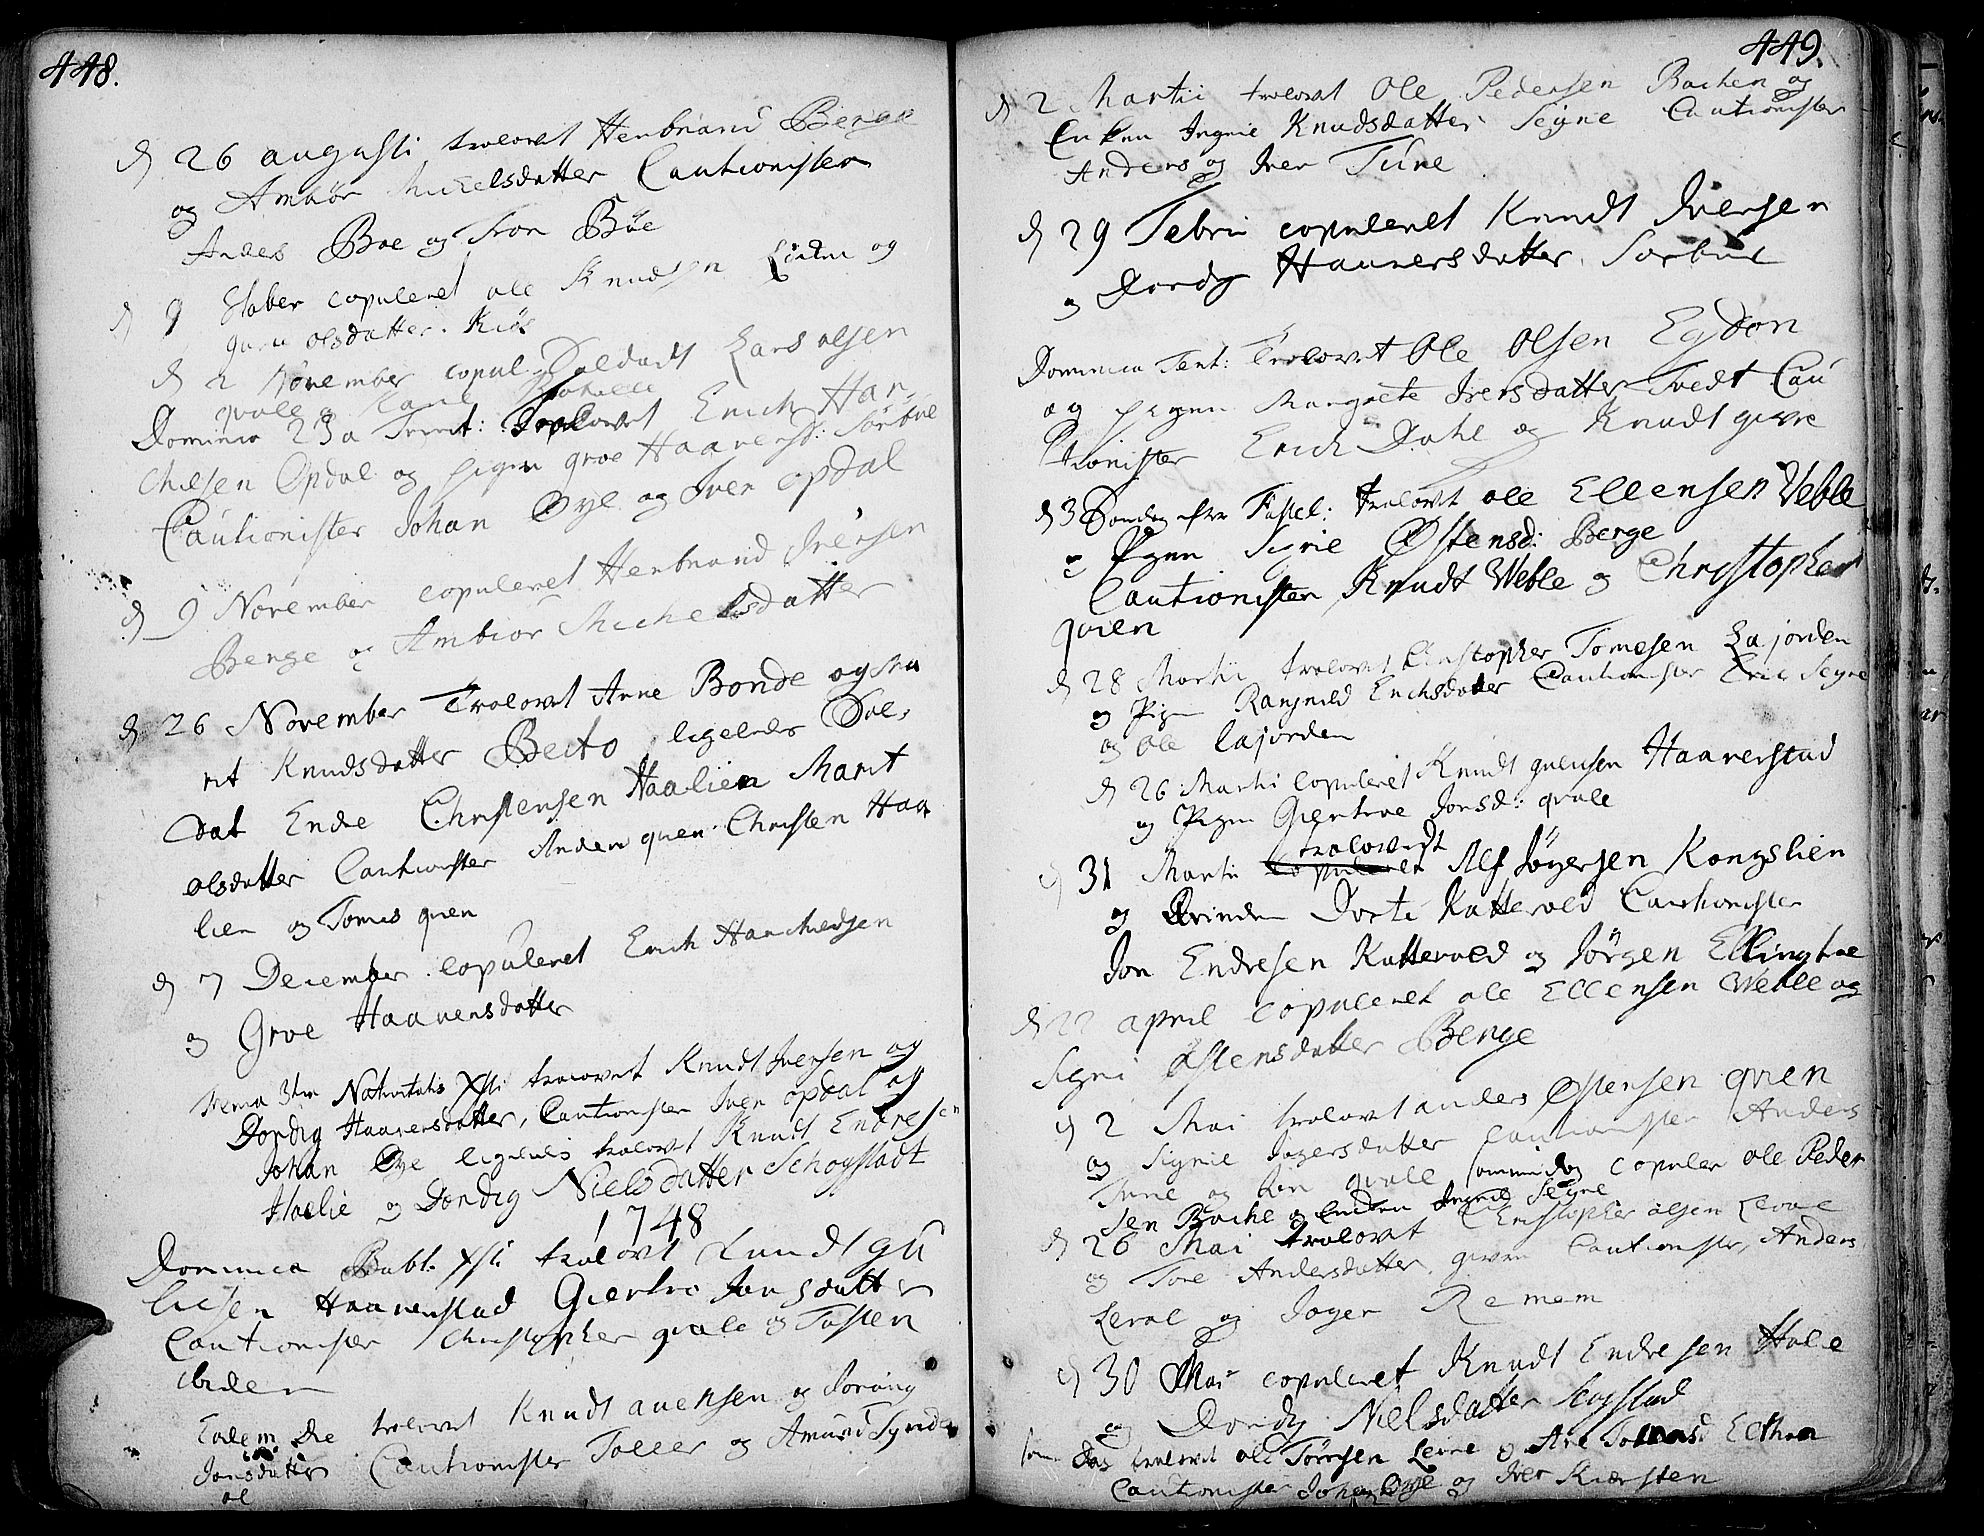 448.
d 26 augusti trolovet Henbrand Berge
og Ambiør Mickelsdatter Cautionister
Andes Boe og Tron Böe
d 9 8tober copuleret ole Knudsen Linden og
guru olsdatter. Kiös
d 2 November copul. Soldadt Lars olsen
qvale og
Dominica 23a Trinit: Trolovet Erich Har-
chelsen Opdal og pigen groe Haavensd: Sörböe
Cautionister Johan Öye og Iver opdal
d 9 November copuleret Henbrand Iversen
Berge og Ambiör Michelsdatter
d 26 November Trolovet Arne Bonde og Ma
rit Knudsdatter Beito ligeledes Sol-
dat Endre Christensen Haalien Marit
olsdatter Cautionister Anders quen Christen Haa
lien og Tomas quen
d 7 December copuleret Erich Harchelsen
og Groe Haavensdatter
Feria 3tia Nativitatis Xsti trolovet Knudt Iversen og
Dordig Haaversdatter, Cautionister Iver opdal og
Johan Öye ligeledes trolovet Knudt Endresen
Hoelie og Dordig Nielsdatter Schogstadt
1748
Dominica Babt. Xsti trolovet Knudt gu
liesen Haaverstad Giertro Jonsdatter
Cautionister Christopher qvale og Tosten
ibidem
Eodem Die trolovet Knudt auensen og
Jonsdatter Cautionister Toller og Amund Synde
ol
449.
d 2 Martii trolovet Ole Pedersen Bachen og
Enken Ingrie Knudsdatter Seyne Cautionister
Anders og Iver Tune
d 29 Febru copuleret Knudt Iversen
og Dordy Haaversdatter Sorbüe
Dominica Trolovet Ole Olsen Egdon
og pigen Margrete Iversdatter Tvedt Cau
tionister Erich Dahl og Knudt givre
d 3 Sondag efter Fastel: trolovt ole Ellensen Veble
og Pigen Signe Østensd: Berge
Cautionister Knudt Weble og Christopher
qvien
d 28 Martii trolovet Christopher Tomesen Lajorden
og Pigen Rangnild Erichsdatter Cautionister Eric Seyne
og Ole Lajorden
d 26 Martii Copuleret Knudt guliesen Haaverstad
og Pigen Giertroe Jonsd: qvale
trolovedt
d 31 Martii copuleret Alf Jögersen Kongslien
og Qvinden Dorte Katterved Cautionister
Jon Endresen Katterved og Jörgen Ellingboe
d 22 april copuleret ole Ellensen Weble og
Signi Østensdatter Berge
d 2 Mai trolovet anders Østensen qvien
og Signie Jogersdatter Cautionister Anders
Tune og Jon qvale samme dag copuler ole Peder
sen Bache og Enken Ingrie Seyne
d 26 Mai trolovet Christopher olsen Leroe
og Tore Andersdatter givre Cautionister, Anders
Leroe og Joger Remem
d 30 Mai copuleret Knudt Endresen Hole
og Dordy Nielsdatter Scogstad
samme Das trolovet ole Törresen Leine og Ane
Cautionister Johan Öye og Iver Kiersten